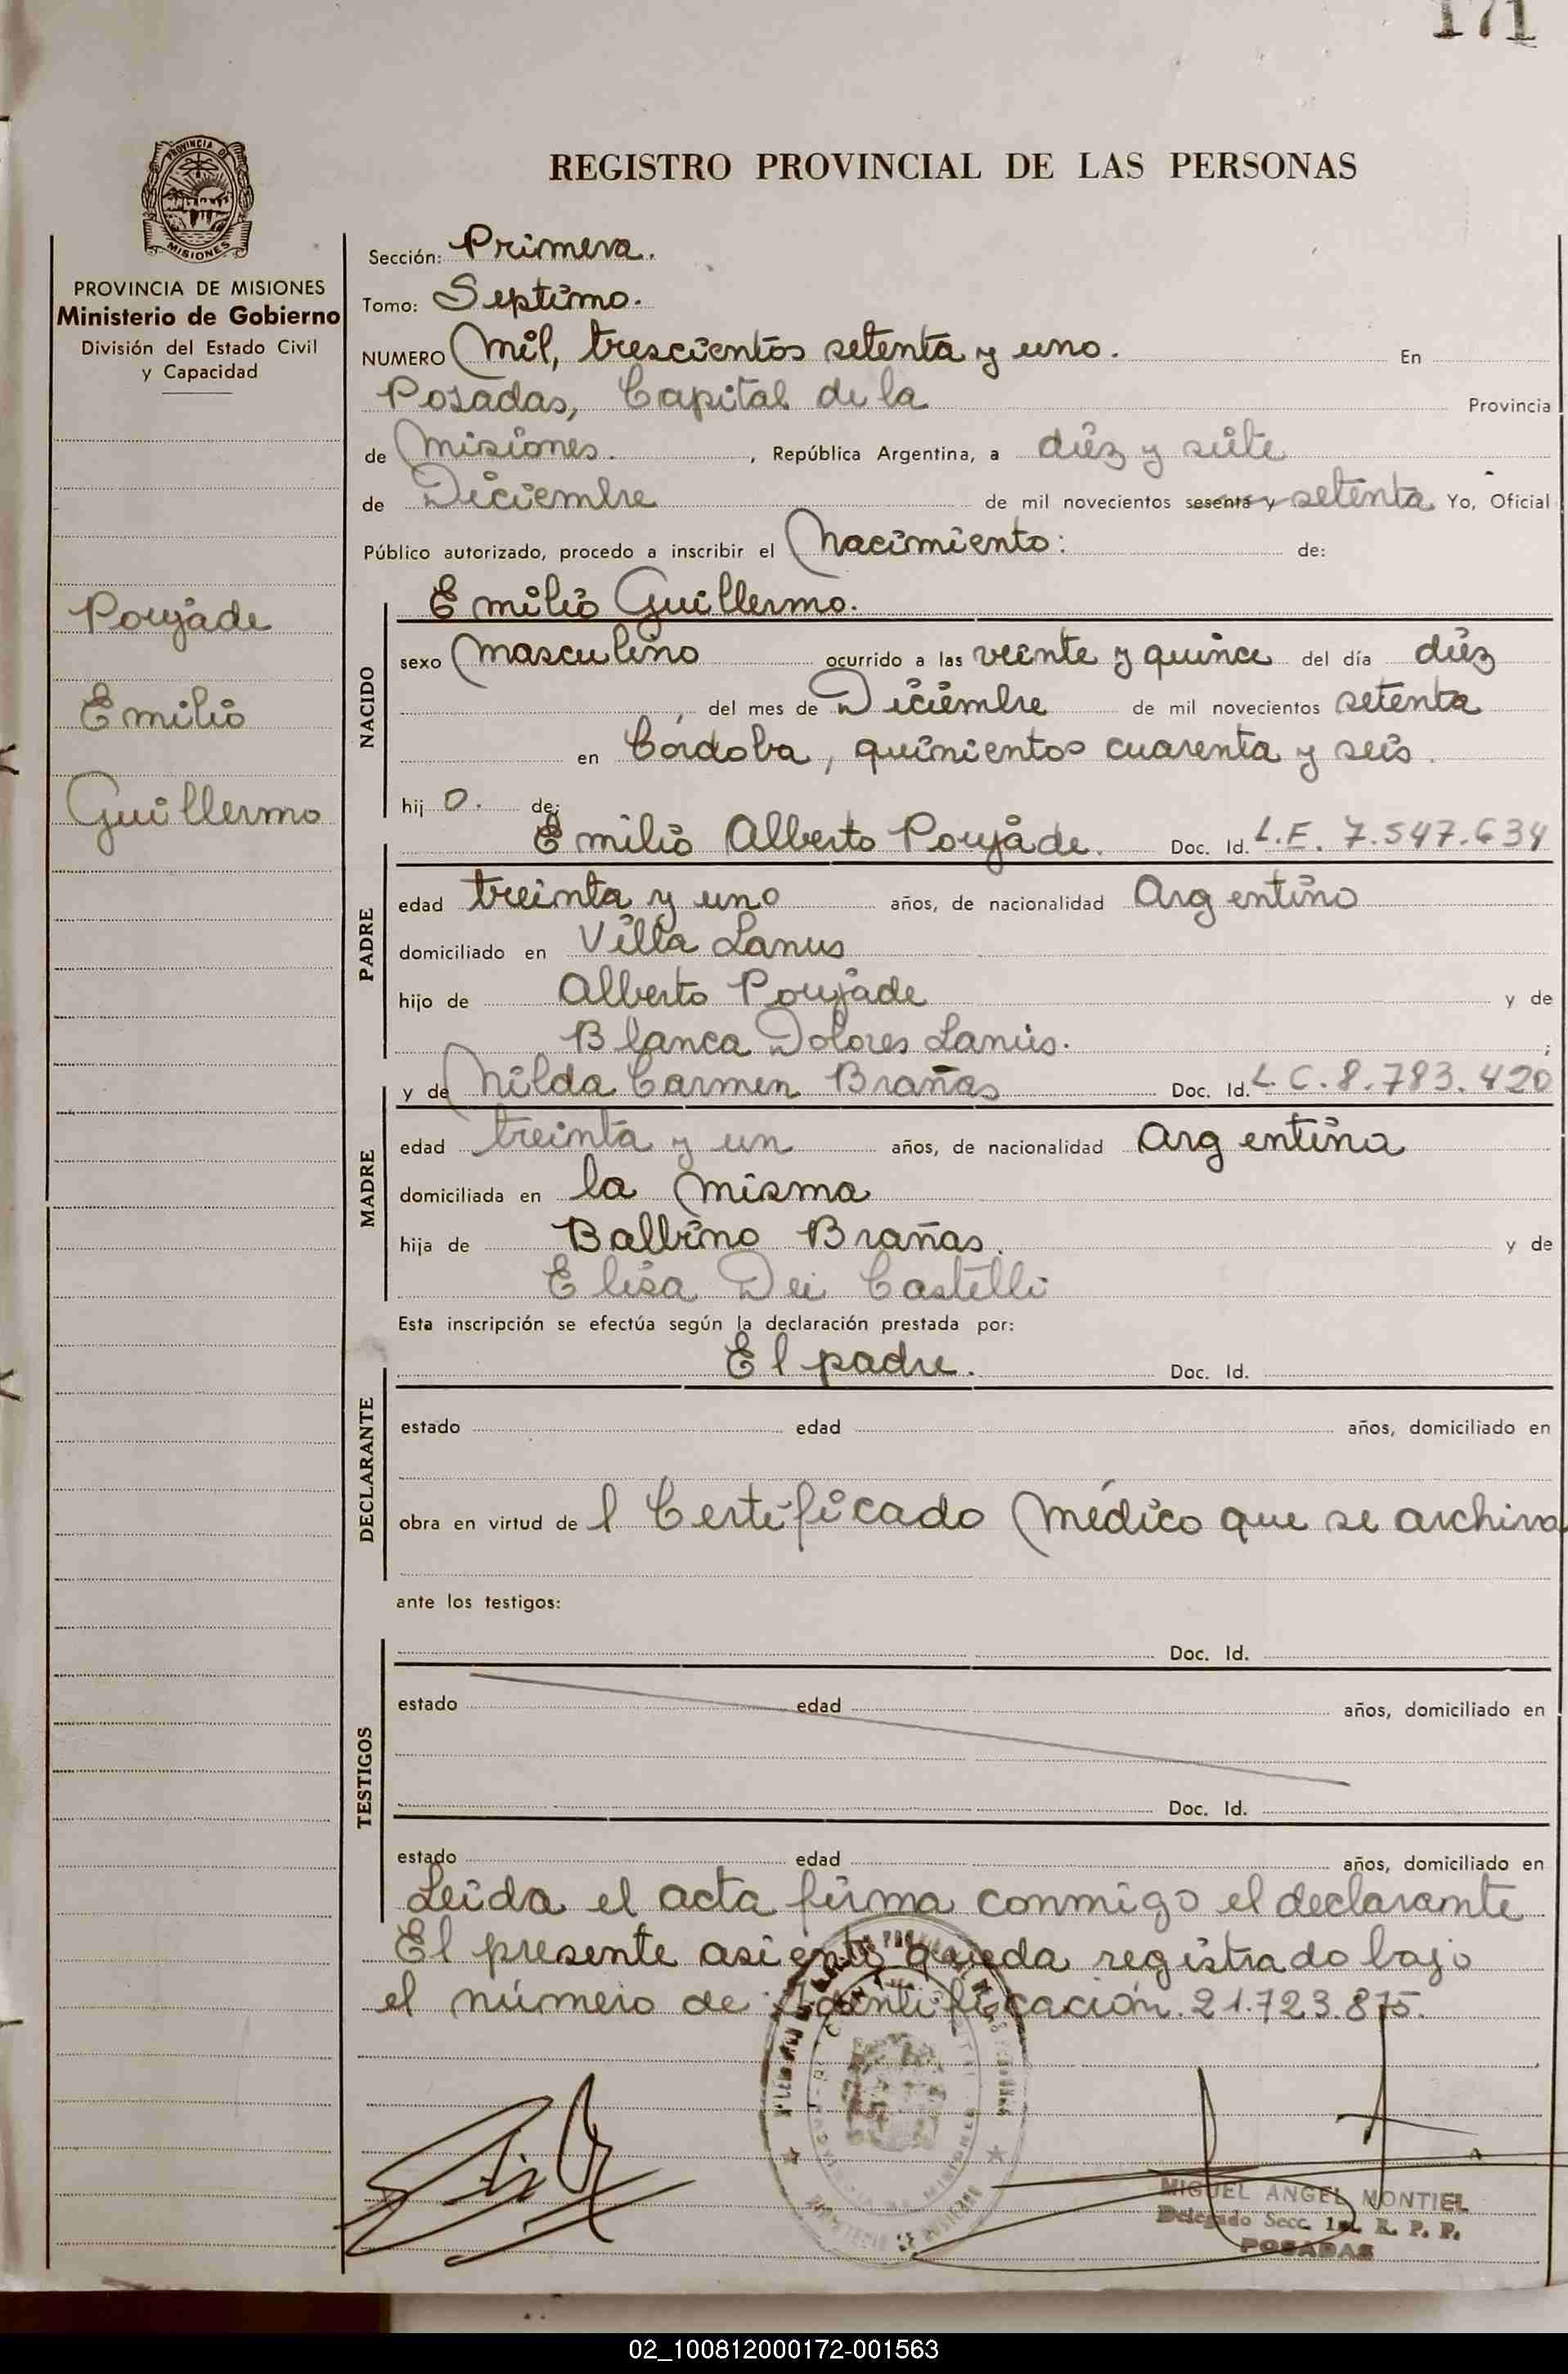 171
REGISTRO PROVINCIAL DE LAS PERSONAS
PROVINCIA DE MISIONES
PROVINCIA DE MISIONES
Ministerio de Gobierno
División del Estado Civil
y Capacidad
Poujade
Emilio
Guillermo
Sección: Primera.
Tomo: Septimo.
NUMERO Mil, trescientos setenta y uno. En
Posadas, Capital de la Provincia
de Misiones. , República Argentina, a diéz y siete
de Diciembre de mil novecientos sesenta y setenta Yo, Oficial
Público autorizado, procedo a inscribir el Nacimiento: de:
Emilio Guillermo.
NACIDO
sexo Masculino ocurrido a las veinte y quince del día diéz
, del mes de Diciembre de mil novecientos setenta
en Córdoba, quinientos cuarenta y seis.
hij o. de:
Emilio Alberto Poujade. Doc. Id. L.E. 7.547.634
PADRE
edad treinta y uno años, de nacionalidad Argentino
domiciliado en Villa Lanus
hijo de Alberto Poujade y de
Blanca Dolores Lanús. ;
y de Nilda Carmen Brañas Doc. Id. L.C. 8.783.420
MADRE
edad treinta y un años, de nacionalidad Argentina
domiciliada en la misma
hija de Balbino Brañas. y de
Elisa Dei Castelli
Esta inscripción se efectúa según la declaración prestada por:
El padre. Doc. Id.
DECLARANTE
estado edad años, domiciliado en
obra en virtud de l Certificado Médico que se archiva
ante los testigos:
Doc. Id.
TESTIGOS
estado edad años, domiciliado en
Doc. Id.
estado edad años, domiciliado en
Leida el acta firma conmigo el declarante
El presente asiento queda registrado bajo
el número de Identificación. 21.723.875.
MIGUEL ANGEL MONTIEL
Delegado Secc. 1a. R. P. P.
POSADAS
02_100812000172-001563